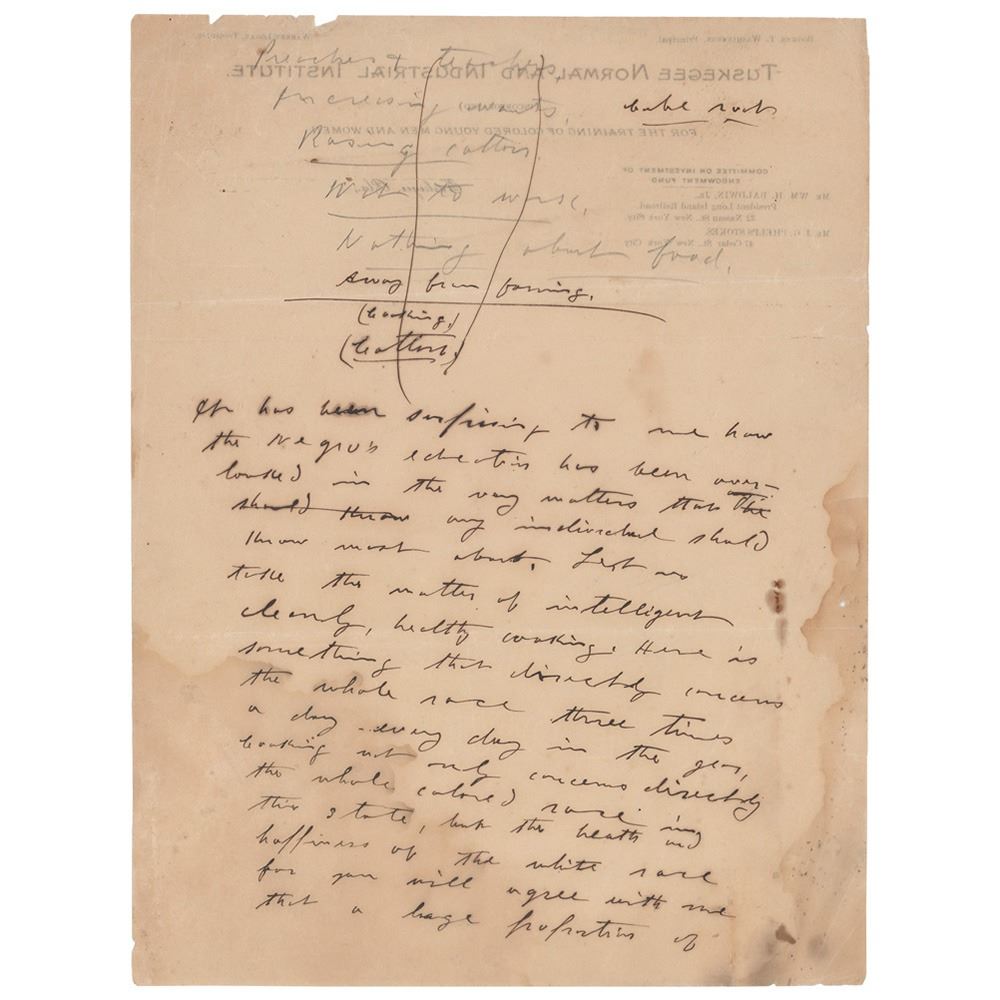 Preachers & teachers
Increasing wants,
Rasing cotton.
With work.
Nothing about food.
away from farming.
(Cooking,)
It has been surprising to me how
the Negro's education has been over-
looked in the very matters that the
should know any individual should
know most about. Let us
take the matter of intelligent
cleanly, healthy cooking. Here is
something that directly concerns
the whole race three times
a day every day in the year,
Cooking not only concerns directly
the whole colored race in
this state, but the health and
happiness of the white race
for you will agree with me
that a large proportion of
WARREN LOGAN, Treasurer.
BOOKER T. WASHINGTON, Principal.
TUSKEGEE NORMAL AND INDUSTRIAL INSTITUTE.
(INCORPORATED)
FOR THE TRAINING OF COLORED YOUNG MEN AND WOMEN
COMMITTEE ON INVESTMENT OF
ENDOWMENT FUND
MR. WM. H. BALDWIN, JR.,
President Long Island Railroad
22 Nassau St., New York City.
MR. J. G. PHELPS STOKES,
47 Cedar St., New York City